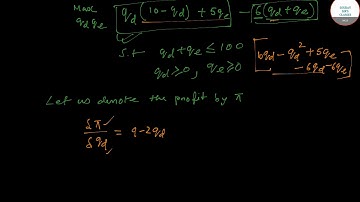 Max
q_d q_e
q_d(10-q_d)+5q_e - 6(q_d+q_e)
S.t q_d+q_e ≤ 100
q_d≥0, q_e≥0
6q_d - q_d^2 + 5q_e
- 6q_d - 6q_e
Let us denote the profit by π
δπ/δq_d = 4-2q_d